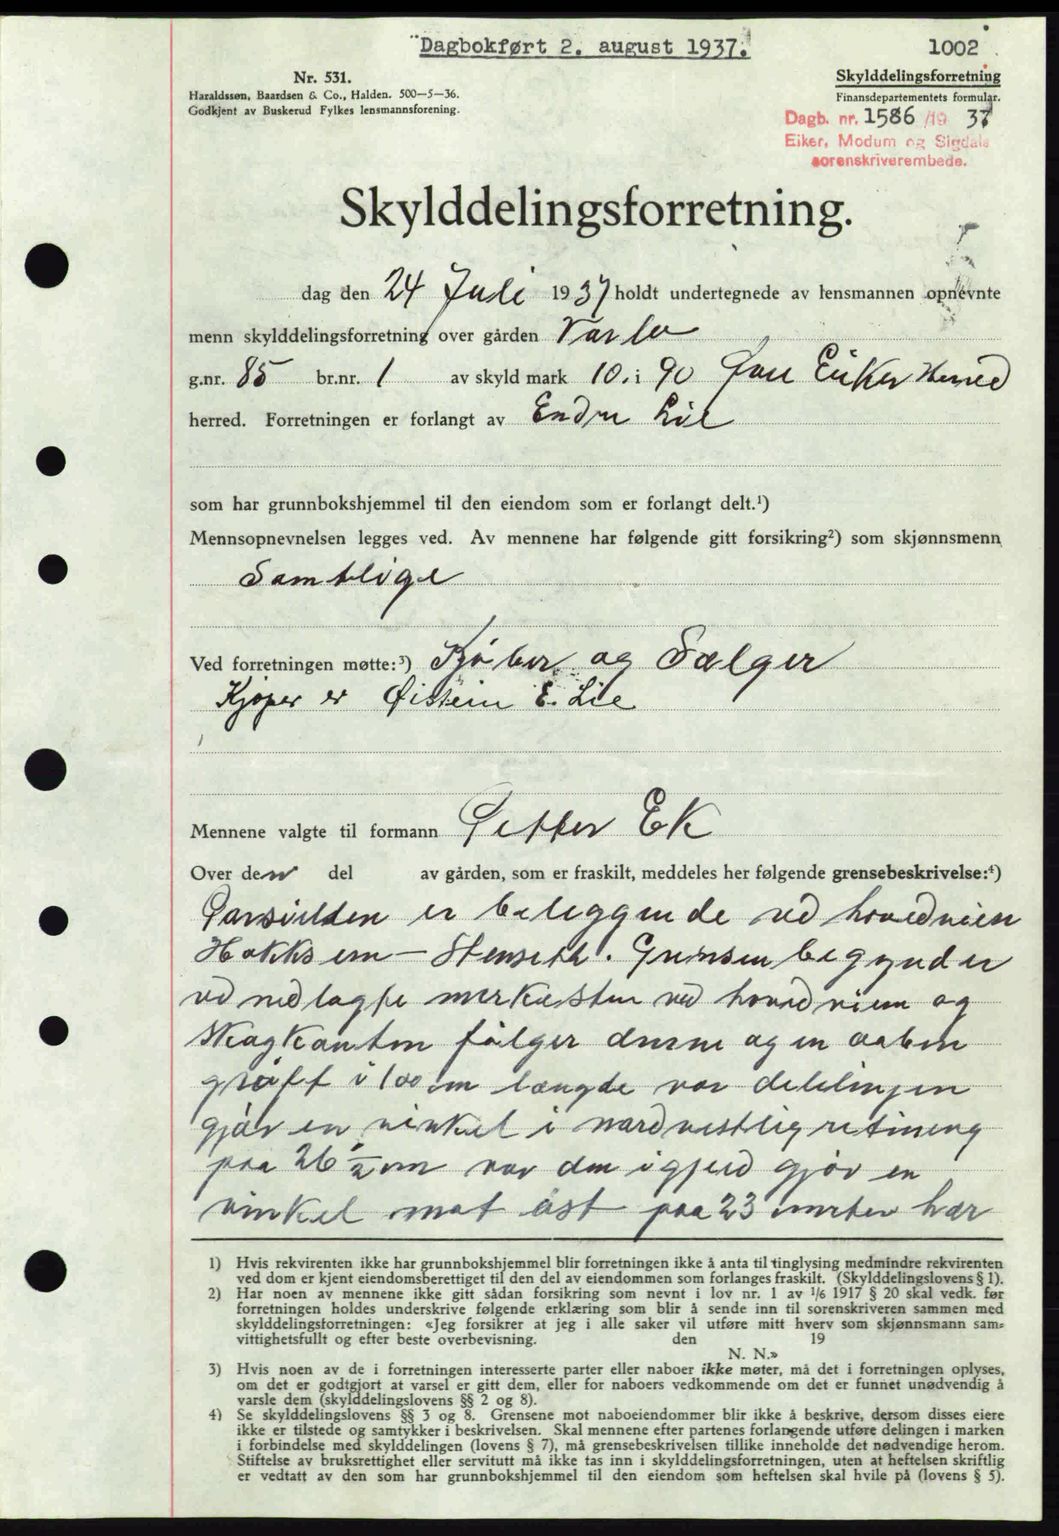 Dagbokført 2. august 1937.
1002
Nr. 531.
Haraldssøn, Baardsen & Co., Halden. 500—5—36.
Godkjent av Buskerud Fylkes lensmannsforening.
Skylddelingsforretning
Finansdepartementets formular.
Dagb. nr. 1586/19 37
Eiker, Modum og Sigdals
sorenskriverembede.
Skylddelingsforretning.
dag den 24 Juli 1937 holdt undertegnede av lensmannen opnevnte
menn skylddelingsforretning over gården Varlo
g.nr. 85 br.nr. 1 av skyld mark 10. i 90 Øvre Eiker Herred
herred. Forretningen er forlangt av Endre Lie
som har grunnbokshjemmel til den eiendom som er forlangt delt.¹)
Mennsopnevnelsen legges ved. Av mennene har følgende gitt forsikring²) som skjønnsmenn
Samtlige
Ved forretningen møtte:³) Kjøber og Sælger
Kjøper er Øistein E. Lie
Mennene valgte til formann Petter Ek
Over den del av gården, som er fraskilt, meddeles her følgende grensebeskrivelse:⁴)
Parsellden er beleggende ved hovedveien
Hokksun — Stenseth. Grensen begynder
ved nedlagte merkesten ved hovedveien og
skogkanten følger denne og en aaben
grøft i 100 m længde var delelinjen
gjør en vinkel i nordvestlig retining
paa 26 ½ m var den igjend gjør en
vinkel mot øst paa 23 meter har
1) Hvis rekvirenten ikke har grunnbokshjemmel blir forretningen ikke å anta til tinglysing medmindre rekvirenten
ved dom er kjent eiendomsberettiget til den del av eiendommen som forlanges fraskilt. (Skylddelingslovens § 1).
2) Har noen av mennene ikke gitt sådan forsikring som nevnt i lov nr. 1 av 1/6 1917 § 20 skal vedk. før
forretningen holdes underskrive følgende erklæring som blir å sende inn til sorenskriveren sammen med
skylddelingsforretningen: «Jeg forsikrer at jeg i alle saker vil utføre mitt hverv som skjønnsmann sam-
vittighetsfullt og efter beste overbevisning. den 19
N. N.»
3) Hvis noen av de i forretningen interesserte parter eller naboer ikke møter, må det i forretningen oplyses,
om det er godtgjort at varsel er gitt dem, eller for naboers vedkommende om det er funnet unødvendig å
varsle dem (skylddelingslovens §§ 2 og 8).
4) Se skylddelingslovens §§ 3 og 8. Grensene mot naboeiendommer blir ikke å beskrive, dersom disses eiere
ikke er tilstede og samtykker i beskrivelsen. Skal mennene efter partenes forlangende utføre delingen i marken
i forbindelse med skylddelingen (lovens § 7), må grensebeskrivelsen tillike inneholde det nødvendige herom.
Stiftelse av bruksrettighet eller servitutt må ikke tas inn i skylddelingsforretningen, uten at heftelsen skriftlig
er vedtatt av den som har grunnbokshjemmel til den eiendom som heftelsen skal hvile på (lovens § 5).